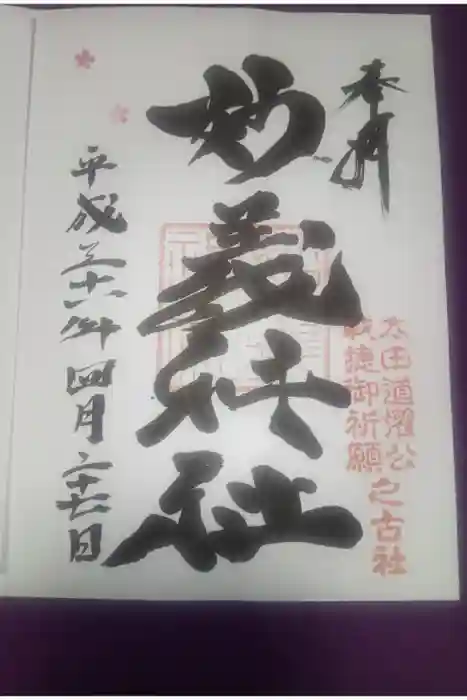 奉拝
太田道灌公
戦捷御祈願
之古社
妙義神社
平成二十六年四月二十七日